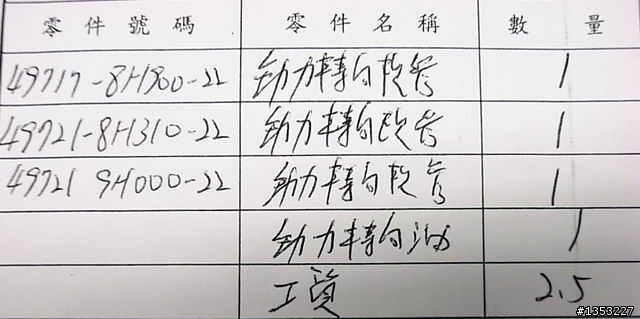 零件號碼 零件名稱 數量
49717-8H900-22 动力轉向软管 1
49721-8H310-22 动力轉向软管 1
49721 9H000-22 动力轉向软管 1
动力轉向油 1
工資 2.5
#1353227